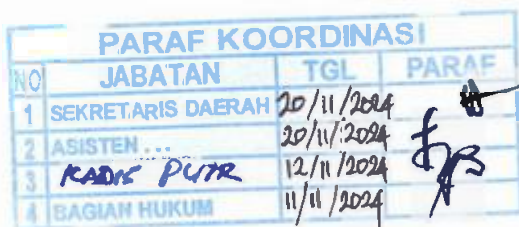 PARAF KOORDINASI
NO JABATAN TGL PARAF
1 SEKRETARIS DAERAH 20/11/2024
2 ASISTEN ... 20/11/2024
3 KADIS PUTR 12/11/2024
4 BAGIAN HUKUM 11/11/2024